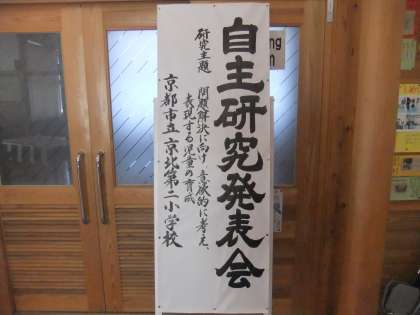 自主研究発表会
研究主題
問題解決に向け、意欲的に考え、
表現する児童の育成
京都市立京北第二小学校